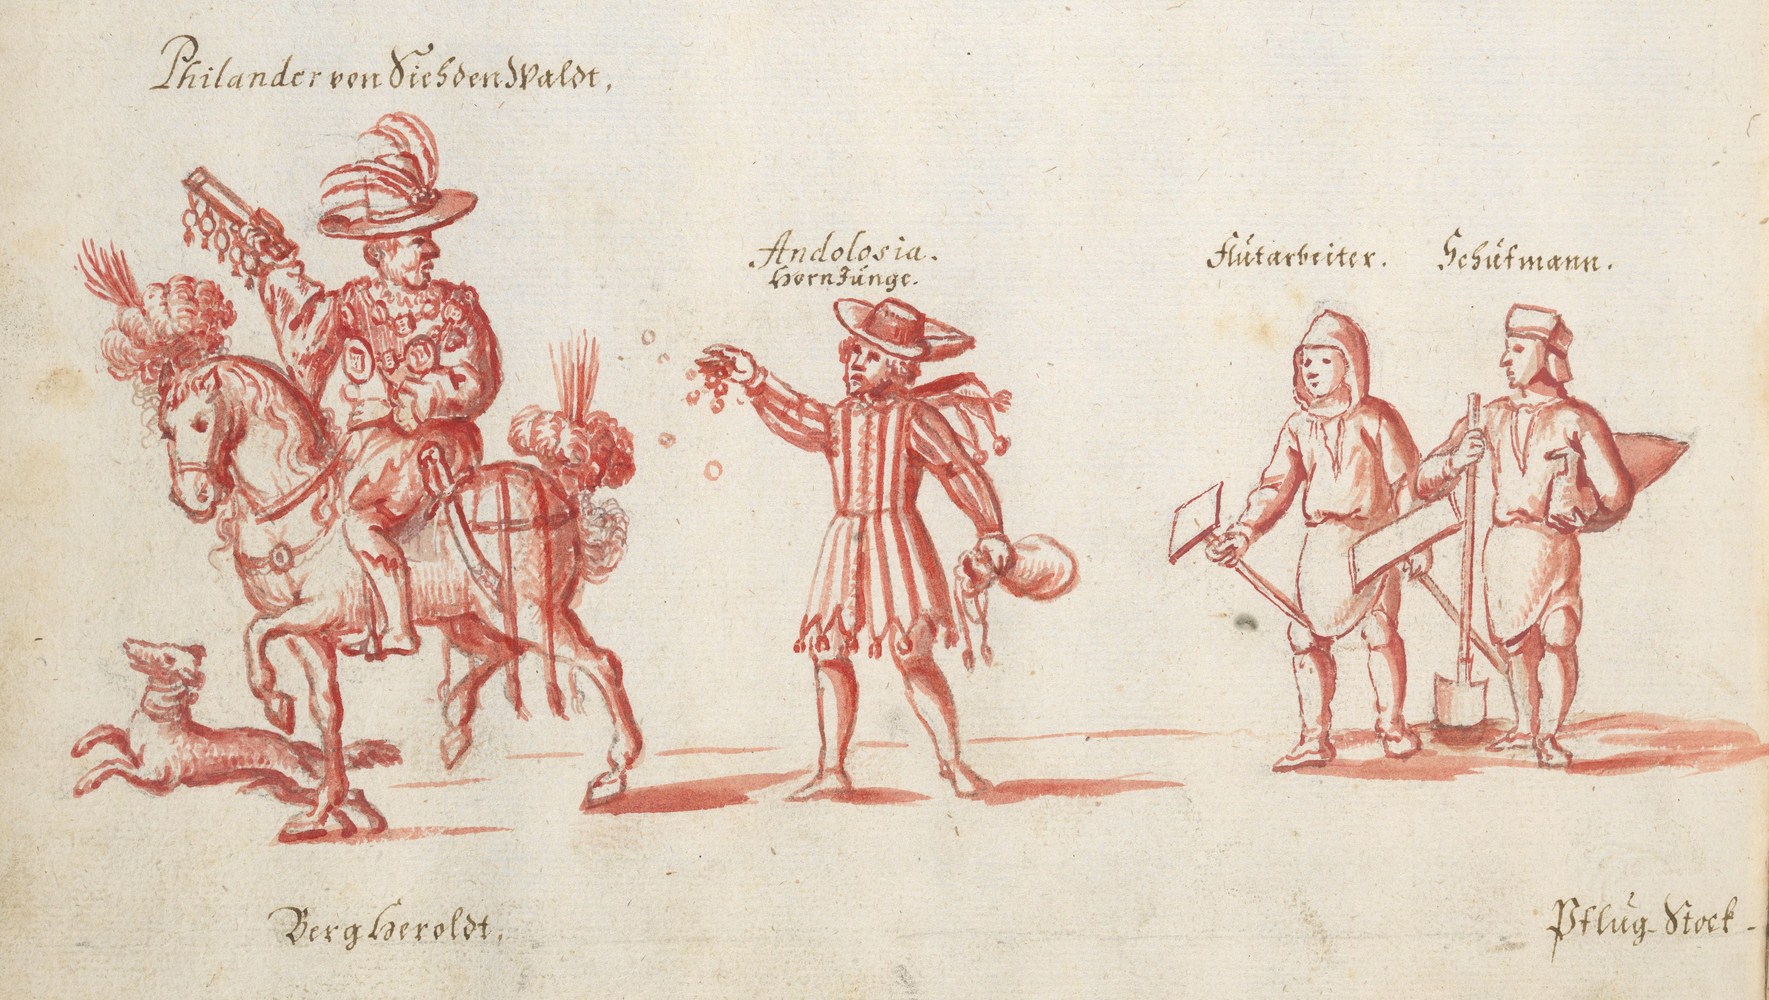 Philander von Siehdenwaldt,
Andolosia.
Horn Junge.
Flütarbeiter. Schüfmann.
Berg Heroldt,
Pflug-Stock-